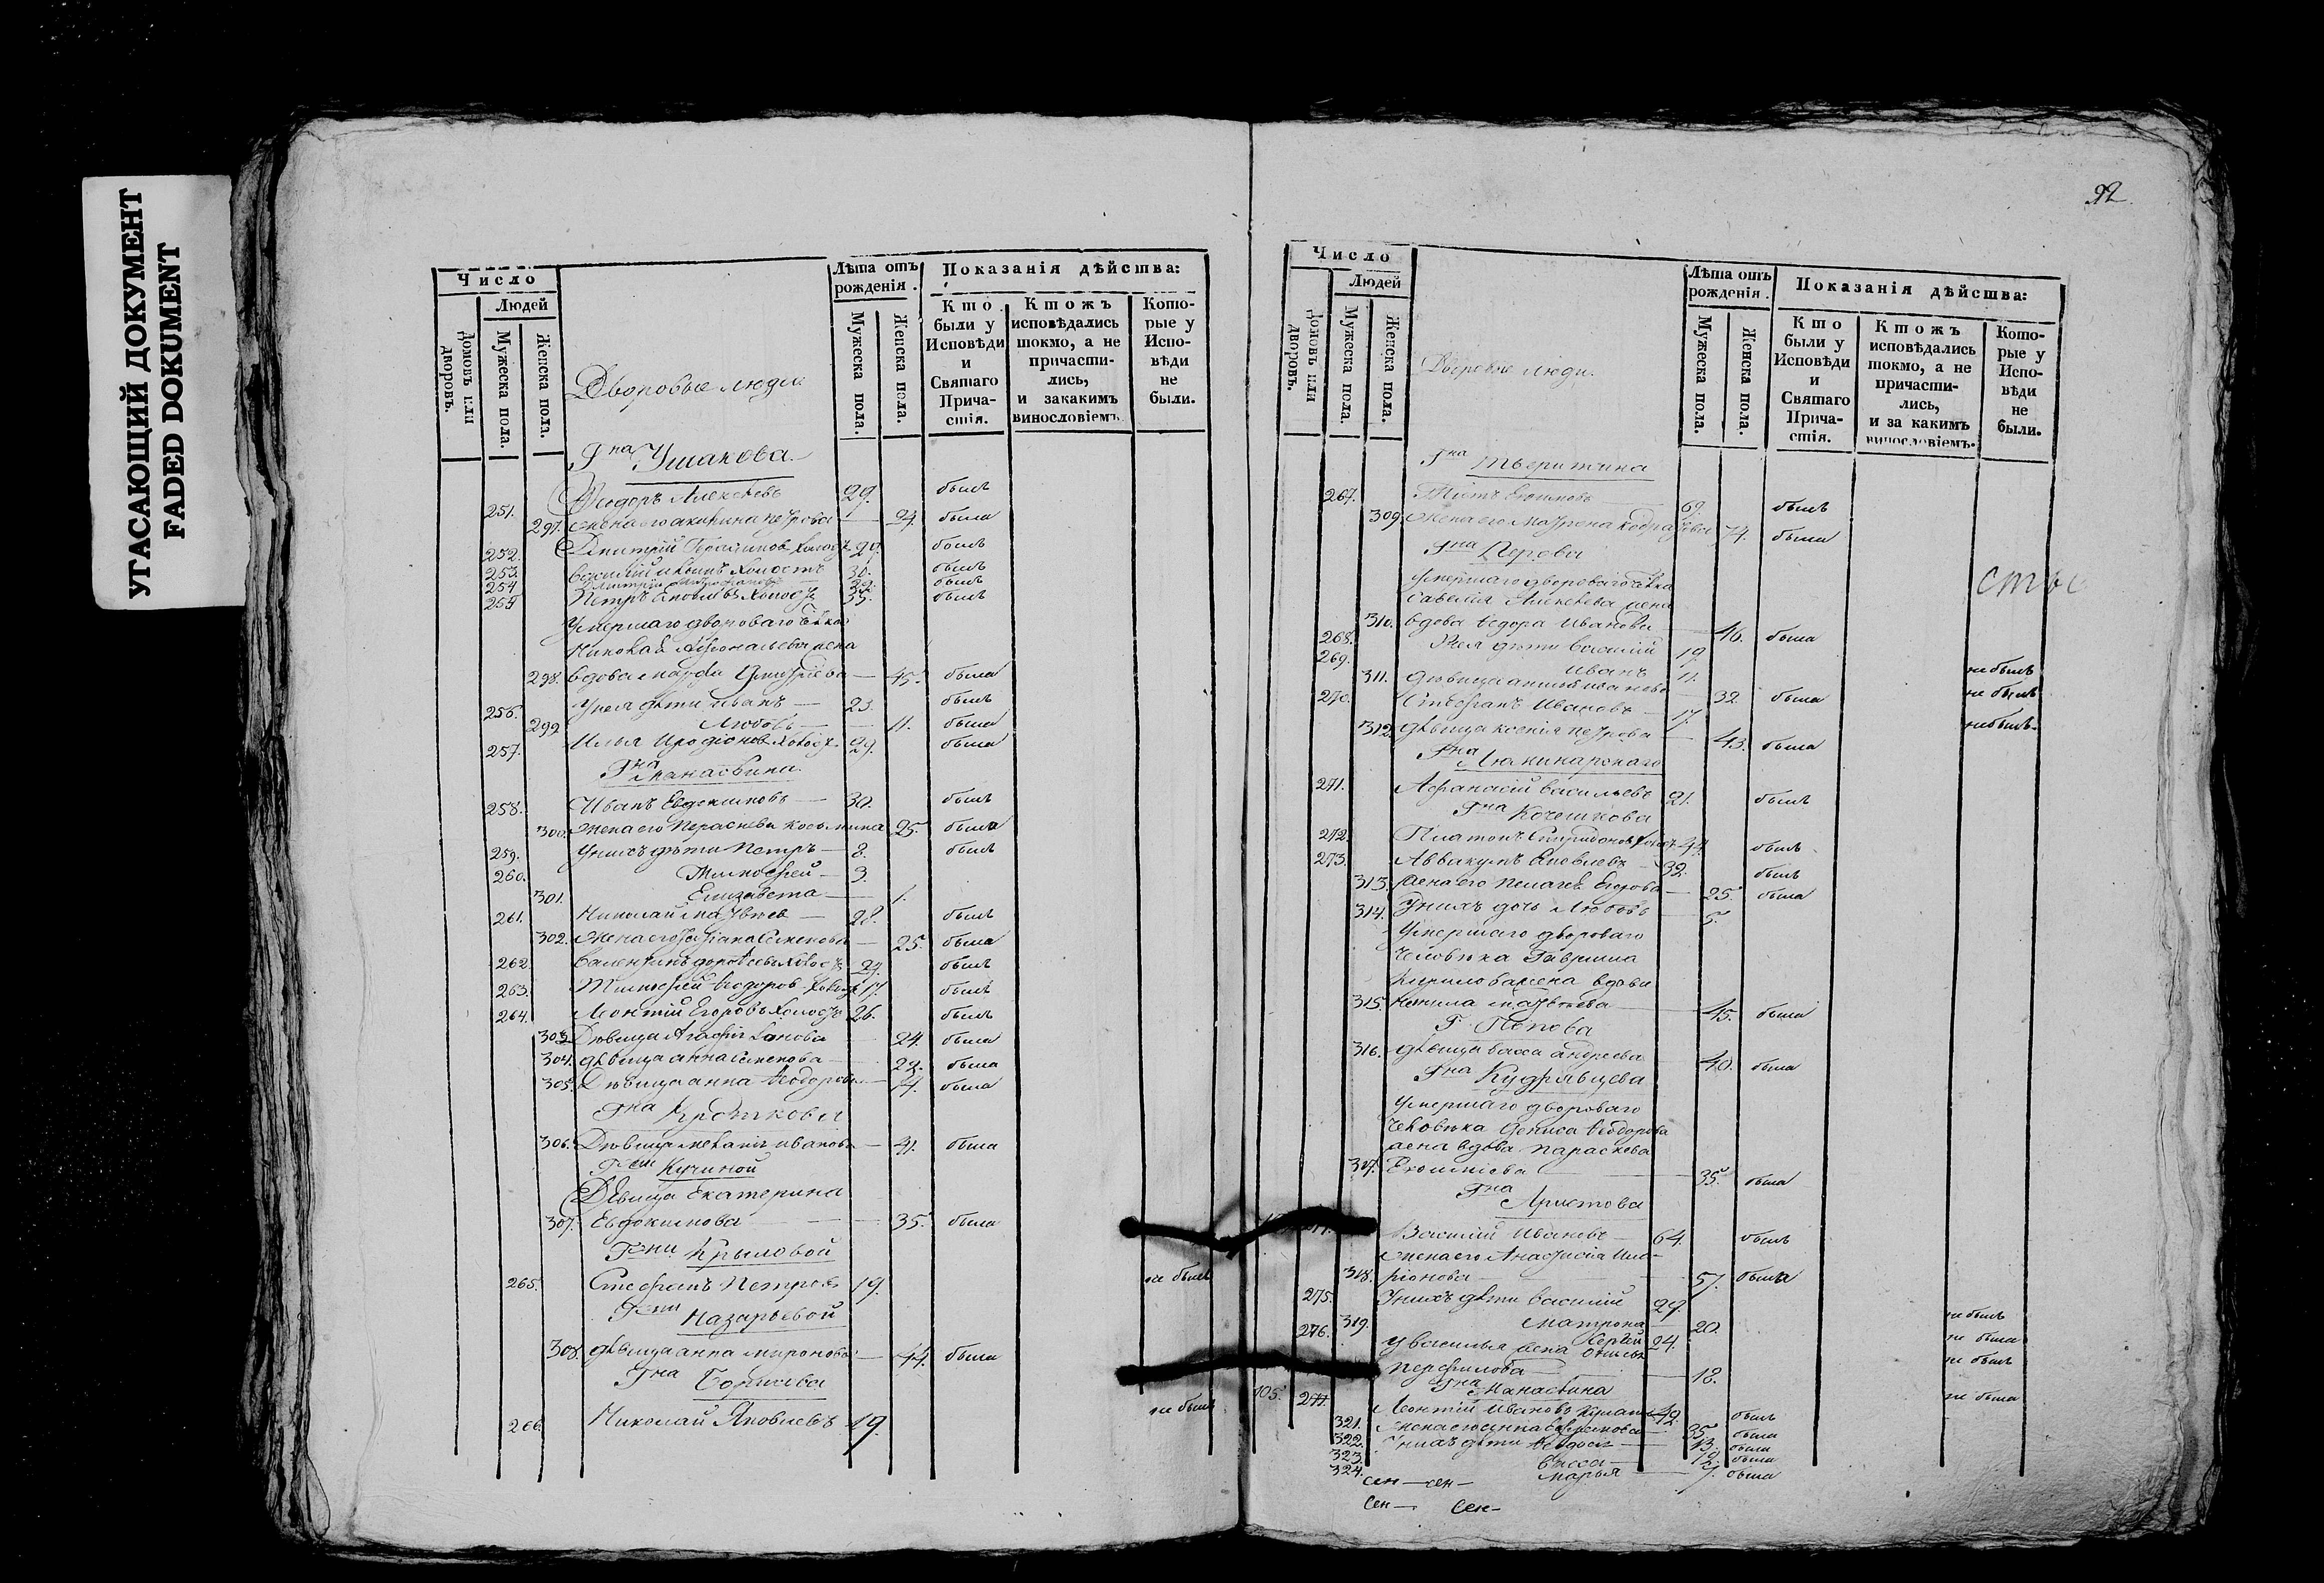 УГАСАЮЩИЙ ДОКУМЕНТ
FADED DOKUMENT
Число
Людей
Домовъ или дворовъ.
Мужеска пола.
Женска пола.
Дворовые люди
Лѣта отъ рожденія.
Мужеска пола.
Женска пола.
Показанія дѣйства:
Кто были у Исповѣди и Святаго Причастія.
Ктожъ исповѣдались токмо, а не причастились, и закакимъ винословіемъ
Которые у Исповѣди не были.
Гна Ушакова
251. Феодоръ Алексѣевъ 29. былъ
297. жена его акилина петрова 24. была
252. Дмитрій Герасимовъ холостъ 29. былъ
253. Василій холостъ 30. былъ
254 Дмитрій 29. былъ
255 Петръ Яковлевъ холостъ 35. былъ
Умершаго двороваго
Николая жена
298. вдова марфа Дмитріева 45. была
256. У нея дѣти иванъ 23. былъ
299 Любовь 11. была
257. Илья Иродіоновъ холостъ 29. была
Гна Манасѣина
258. Иванъ Евдокимовъ 30. былъ
300. жена его Параскева косьмина 25. была
259. У нихъ дѣти Петръ 8. былъ
260. Тимофей 3.
301. Елизавета 1.
261. Николай матвѣев 28. былъ
302. жена его татіана Семенова 25. была
262. Валентинъ дорофеевъ холостъ 24. былъ
263. Тимофей Феодоров холостъ 17. былъ
264. Леонтій Егоровъ холостъ 26. былъ
303. Дѣвица Агафія 24. была
304. дѣвица анна Семенова 22. была
305. Дѣвица анна Феодорова 4. была
Гна Кроткова
306. Дѣвица меланія иванова 41. была
Гжи Кучиной
Дѣвица Екатерина
307. Евдокимова 35. была
Гжи Крыловой
265. Стефанъ Петров 19. не былъ
Гжи Назарьевой
308. дѣвица анна миронова 44. была
Гна
266. Николай Яковлевъ 19. не былъ
92.
Число
Людей
Домовъ или дворовъ.
Мужеска пола
Женска пола.
Дворовые люди.
Лѣта отъ рожденія.
Мужеска пола.
Женска пола.
Показанія дѣйства:
Кто были у Исповѣди и Святаго Причастія.
Ктожъ исповѣдались токмо, а не причастились, и за какимъ винословіемъ.
Которые у Исповѣди не были.
Гна
267. Титъ Евфимовъ 69. былъ
309 жена его Матрена 74. была
Гна Перова
Умершаго двороваго
Савелія Алексѣева жена
310. вдова Федора Иванова 46. была
268. У нея дѣти василій 19. не былъ
269. Иванъ 11. не былъ
311. дѣвица иванова 32. была
270. Стефанъ Ивановъ 17. не былъ
312. дѣвица ксенія петрова 43. была
Гна
271. Афанасій васильевъ 21. былъ
Гна Кочешкова
272. Платонъ Спиридоновъ холостъ 44. былъ
273. Аввакумъ Яковлевъ 32. былъ
313. жена его пелагея Егорова 25. была
314. У нихъ дочь Любовь 5.
Умершаго двороваго
человѣка Гавриила
кирилова жена вдова
315. ненила матвѣева 45. была
Г. Попова
316. дѣвица васса андреева 40. была
Гна Кудрявцева
Умершаго двороваго
человѣка Дениса Феодорова
жена вдова параскева
317. 35. была
Гна Аристова
Василій Ивановъ 64. былъ
жена его Анастасія Ила-
318. ріонова 57. была
275. У нихъ дѣти василій 29. не былъ
319. Матрона 20. не была
276. Сергѣй 24. не былъ
У василья жена
перфилова 18. не была
Гна Манасѣина
105. 277. Леонтій Ивановъ 42. былъ
321. жена его анна 35 была
322. У нихъ дѣти Феодосія 13. была
323. Васса 12. была
324. Марья 7. была
сен— сен—
Сен— Сен—